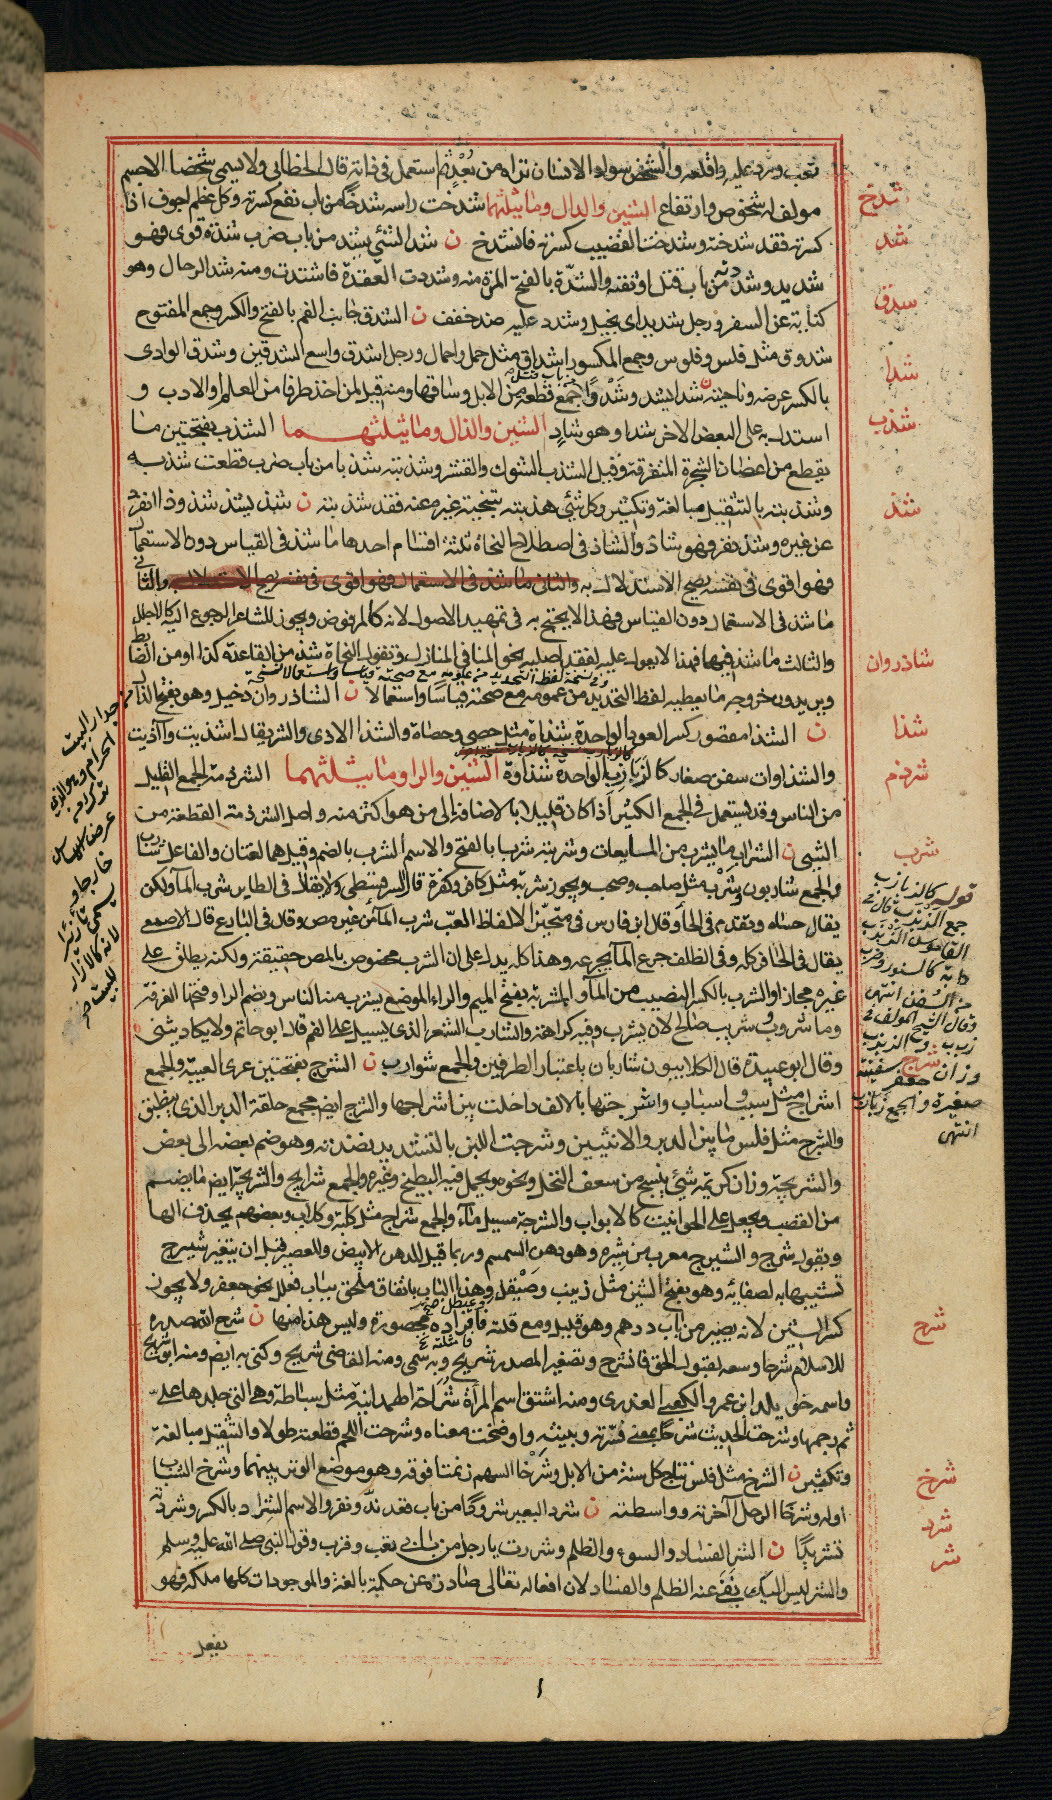 تعب ورد عليه واقلعه والشخص سواد الانسان تراه من بعد ثم استعمل في ذاته قال الخطابي ولا يسمى شخصا الا جسم
مولف له شخوص وارتفاع الشين والدال وما يثلثهما شدخت راسه شدخا من باب نفع كسرته وكل عظم اجوف اذا
كسرته فقد شدخته وشدخت القضيب كسرته فانشدخ ن شد الشئ يشد من باب ضرب شدة قوى فهو
شديد وشددته من باب قتل اوثقته والشدّة بالفتح المرة منه وشددت العقدة فاشتدت ومنه شد الرحال وهو
كناية عن السفر ورجل شديد اى بخيل وشدد عليه ضد خفف ن الشدق جانب الفم بالفتح والكسر وجمع المفتوح
شدوق مثل فلس وفلوس وجمع المكسور اشداق مثل حمل واحمال ورجل اشدق واسع الشدقين وشدق الوادى
بالكسر عرضه وناحيته ن شدا يشدو شدوا جمع قطعة من الابل وساقها ومنه قيل لمن اخذ طرفا من العلم او الادب و
استدل به على البعض الاخر شدا وهو شادٍ الشين والذال وما يثلثهما الشذب بفتحتين ما
يقطع من اغصان الشجرة المتفرقة وقيل الشذب الشوك والقشر وشذبته شذبا من باب ضرب قطعت شذبه
وشذبته بالتثقيل مبالغة وتكثير وكل شئ هذبته بتنحية غيره عنه فقد شذبته ن شذ يشذ شذوذا انفرد
عن غيره وشذ نفر فهو شاذ والشاذ في اصطلاح النحاة ثلثة اقسام احدها ما شذ في القياس دون الاستعمال
فهو اقوى في نفسه يصح الاستدلال به والثانى ما شذ في الاستعمال فهو اقوى في نفسه يصح الاستدلال به والثانى
ما شذ في الاستعمال دون القياس فهذا لا يحتج به في تمهيد الاصول لانه كالمرفوض ويجوز للشاعر الرجوع اليه كالاجلل
والثالث ما شذ فيهما فهذا لا يعول عليه لفقد اصليه نحو المنا في المنازل وتقول النحاة شذ من القاعدة كذا او من الضابط
ويريدون خروجه مما يعطيه لفظ التحديد من عمومه مع صحته قياسا واستعمالا ن الشاذروان دخيل وهو بفتح الذال
ن الشذا مقصور كسر العود الواحدة شذاة مثل حصى وحصاة والشذا الاذى والشر يقال اشذيت وآذيت
والشذاوات سفن صغار كالزبازب الواحدة شذاوة الشين والرا وما يثلثهما الشرذمة الجمع القليل
من الناس وقد يستعمل في الجمع الكثير اذا كان قليلا بالاضافة الى من هو اكثر منه واصل الشرذمة القطعة من
الشئ ن الشراب ما يشرب من المايعات وشربته شربا بالفتح والاسم الشرب بالضم وقيل هما لغتان والفاعل شارب
والجمع شاربون وشَرْب مثل صاحب وصحب ويجوز شربة مثل كافر وكفرة قال السرقسطى ولا يقال في الطاير شرب الماء ولكن
يقال حساه وتقدم في الحاء وقال ابن فارس في متخير الالفاظ العب شرب الماء من غير مص وقال في البارع قال الاصمعى
يقال في الحافر كله وفى الظلف جرع الماء يجرعه وهذا كله يدل على ان الشرب مخصوص بالمص حقيقة ولكنه يطلق على
غيره مجازا والشرب بالكسر النصيب من الماء والمشربة بفتح الميم والراء الموضع يشرب منه الناس وبضم الرا وفتحها الغرفة
وماء شروب وشريب صالح لان يشرب وفيه كراهة والشارب الشعر الذى يسيل على الفم قال ابو حاتم ولا يكاد يثنى
وقال ابو عبيدة قال الكلابيون شاربان باعتبار الطرفين والجمع شوارب ن الشرج بفتحتين عرى العيبة والجمع
اشراج مثل سبب واسباب واشرجتها بالالف داخلت بين اشراجها والشرج ايض مجمع حلقة الدبر الذى ينطبق
والشرج مثل فلس ما بين الدبر والانثيين وشرجت اللبن بالتشديد نضدته وهو ضم بعضه الى بعض
والشريجة وزان كريمة شئ ينسج من سعف النخل ونحوه ويحمل فيه البطيخ وغيره والجمع شرايج والشريجة ايض ما يضم
من القصب ويجعل على الحوانيت كالابواب والشرجة مسيل ماء والجمع شراج مثل كلبة وكلاب وبعضهم يحذف الها
ويقول شرج والشيرج معرب من شيره وهو دهن السمسم وربما قيل للدهن الابيض وللعصير قبل ان يتغير شيرج
تشبيها به لصفائه وهو بفتح الشين مثل زينب وصَيْقل وهذا الباب باتفاق ملحق بباب فعلل نحو جعفر ولا يجوز
كسر الشين لانه يصير من باب درهم وهو قليل ومع قلته فافراده محصورة وليس هذا منها ن شرح الله صدره
للاسلام شرحا وسعه لقبول الحق فانشرح وتصغير المصدر شريح وبه سمى ومنه القاضى شريح وكنى به ايض ومنه ابو شريح
واسمه خويلد ابن عمرو الكعبى العدوى ومنه اشتق اسم المرأة شُراحة الهمدانية مثل سباطة وهى التى جلدها على
ثم رجمها وشرحت الحديث شرحا بمعنى فسّرته وبينته واوضحت معناه وشرحت اللحم قطعته طولا والتثقيل مبالغة
وتكثير ن الشرخ مثل فلس نتاج كل سنة من الابل وشَرْخا السهم زنمتا فوقه وهو موضع الوتر بينهما وشرخ الشباب
اوله وشرخا الرحل آخرته وواسطته ن شرد البعير شرودا من باب قعد ندّ ونفر والاسم الشراد بالكسر وشردته
تشريدًا ن الشر الفساد والسوء والظلم وشررت يا رجل من بابى تعب وقرب وقول النبي صلى الله عليه وسلم
والشر ليس اليك نفى عنه الظلم والفساد لان افعاله تعالى صادرة عن حكمة بالغة والموجودات كلها ملكه فهو
يفعل
شدخ
شد
شدق
شدا
شذب
شذ
شاذروان
شذا
شرذم
شرب
شرج
شرح
شرخ
شرد
شر
من جدار البيت
الحرام وهو الذى
ترك من
عرض الاساس
خارجا و
يسمى تازيرا
لانه كالازار
للبيت
قوله كالزبازب
جمع الزبزب قال في
القاموس الزبزب
دابة كالسنور وضرب
من السفن انتهى
وقال الشيخ المولف في
زبب والزبزب
وزان جعفر سفينة
صغيرة والجمع زبازب
انتهى
١